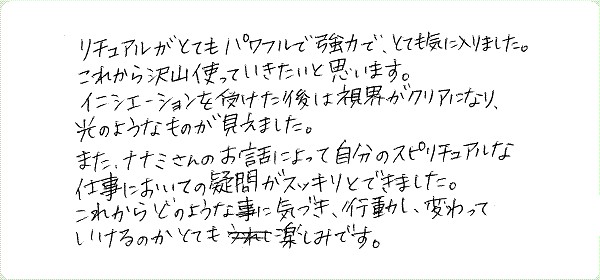 リチュアルがとてもパワフルで強力で、とても気に入りました。
これから沢山使っていきたいと思います。
イニシエーションを受けた後は視界がクリアになり、
光のようなものが見えました。
また、ナナミさんのお話によって自分のスピリチュアルな
仕事においての疑問がスッキリとできました。
これからどのような事に気づき、行動し、変わって
いけるのかとても楽しみです。